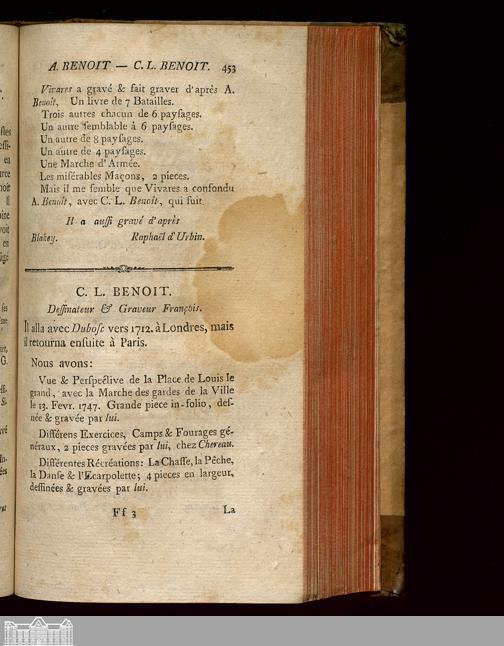 A. BENOIT — C. L. BENOIT. 453
Vivares a gravé & fait graver d'après A.
Benoît, Un livre de 7 Batailles.
Trois autres chacun de 6 payſages.
Un autre ſemblable à 6 payſages.
Un autre de 8 payſages.
Un autre de 4 payſages.
Une Marche d'Armée.
Les miſérables Maçons, 2 pieces.
Mais il me ſemble que Vivares a confondu
A. Benoît, avec C. L. Benoît, qui ſuit.
Il a auſſi gravé d'après
Blakey. Raphaël d'Urbin.
C. L. BENOIT.
Deſſinateur & Graveur François.
Il alla avec Duboſc vers 1712. à Londres, mais
il retourna enſuite à Paris.
Nous avons:
Vue & Perſpective de la Place de Louis le
grand, avec la Marche des gardes de la Ville
le 13. Fevr. 1747. Grande piece in-folio, deſ-
née & gravée par lui.
Différens Exercices, Camps & Fourages gé-
néraux, 2 pieces gravées par lui, chez Chereau.
Différentes Récréations: La Chaſſe, la Pêche,
la Danſe & l'Ecarpolette; 4 pieces en largeur,
deſſinées & gravées par lui.
Ff 3 La